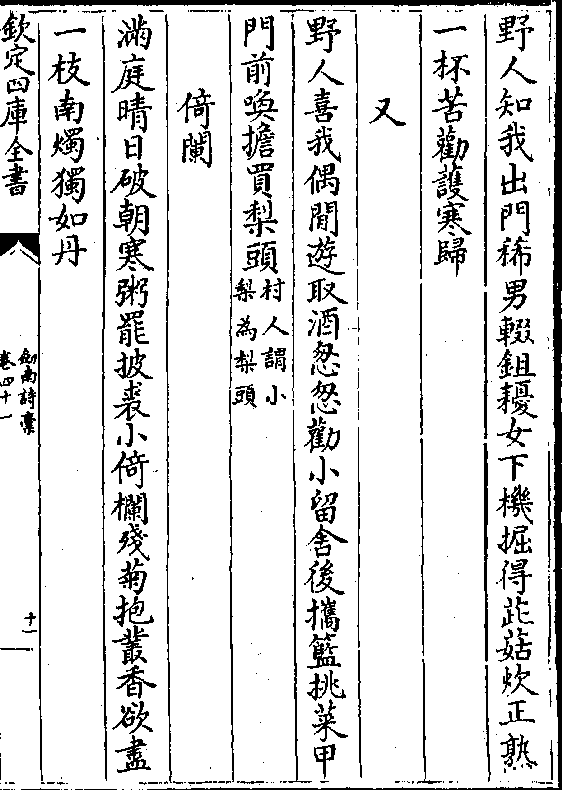 野人知我出門稀男輟鉏耰女下機掘得茈菇炊正熟
一杯苦勸護寒歸
又
野人喜我偶閒遊取酒怱怱勸小留舍後攜籃挑菜甲
門前喚擔買梨頭村人謂小
梨為梨頭
倚闌
滿庭晴日破朝寒粥罷披裘小倚欄殘菊抱叢香欲盡
一枝南燭獨如丹
欽定四庫全書
劍南詩槀
卷四十一
十一